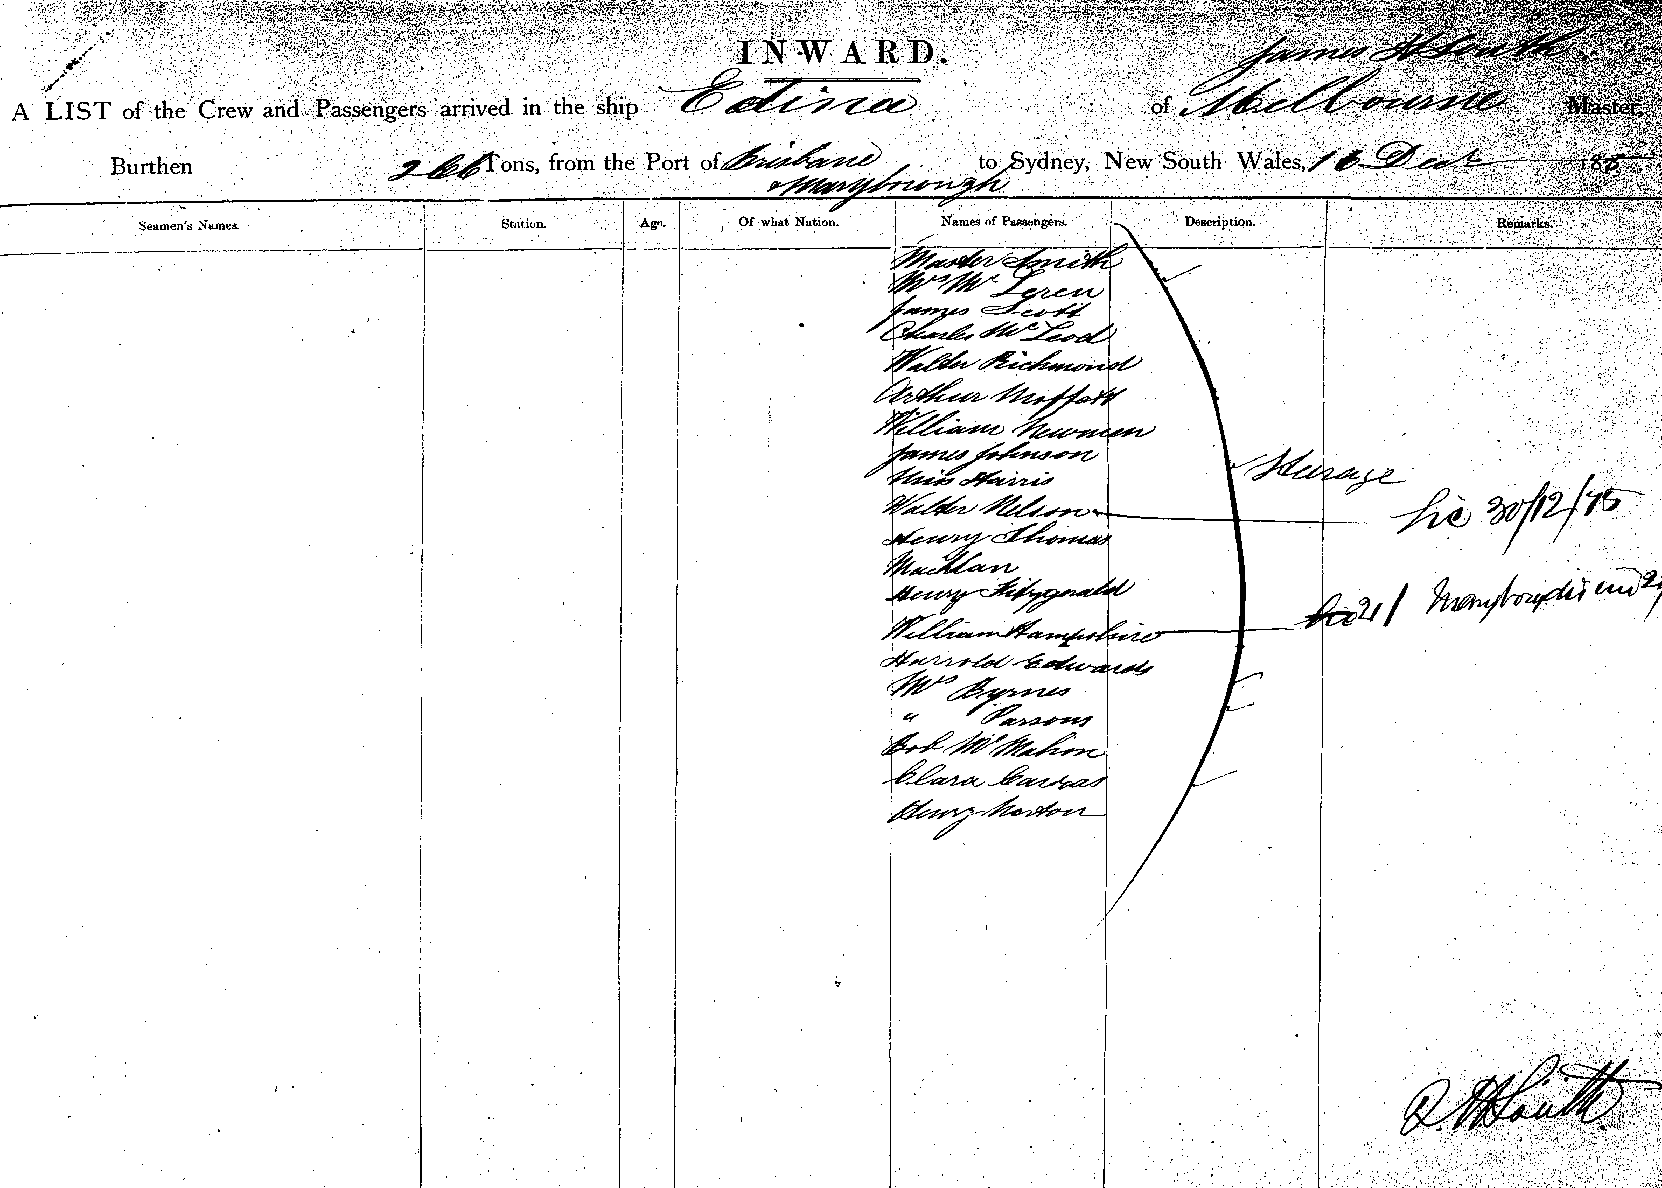 INWARD.
James H Smith
A LIST of the Crew and Passengers arrived in the ship Edina of Melbourne Master,
Burthen 266 Tons, from the Port of Brisbane to Sydney, New South Wales, Decr 18
Maryborough
Seamen's Names. Station. Age. Of what Nation. Names of Passengers. Description. Remarks.
Master Smith
Mrs Mc Leren
James Scott
Charles Mc Leod
Walter Richmond
Arthur Moffatt
William Newman
James Johnson
Steerage
Miss Harris
Walter Nelson Lic 30/12/75
Henry Thomas
Macklan
Henry Fitzgerald
William Hampshire
Harrold Edwards
Mrs Byrnes
" Parsons
Bob McMahon
Clara
Henry Norton